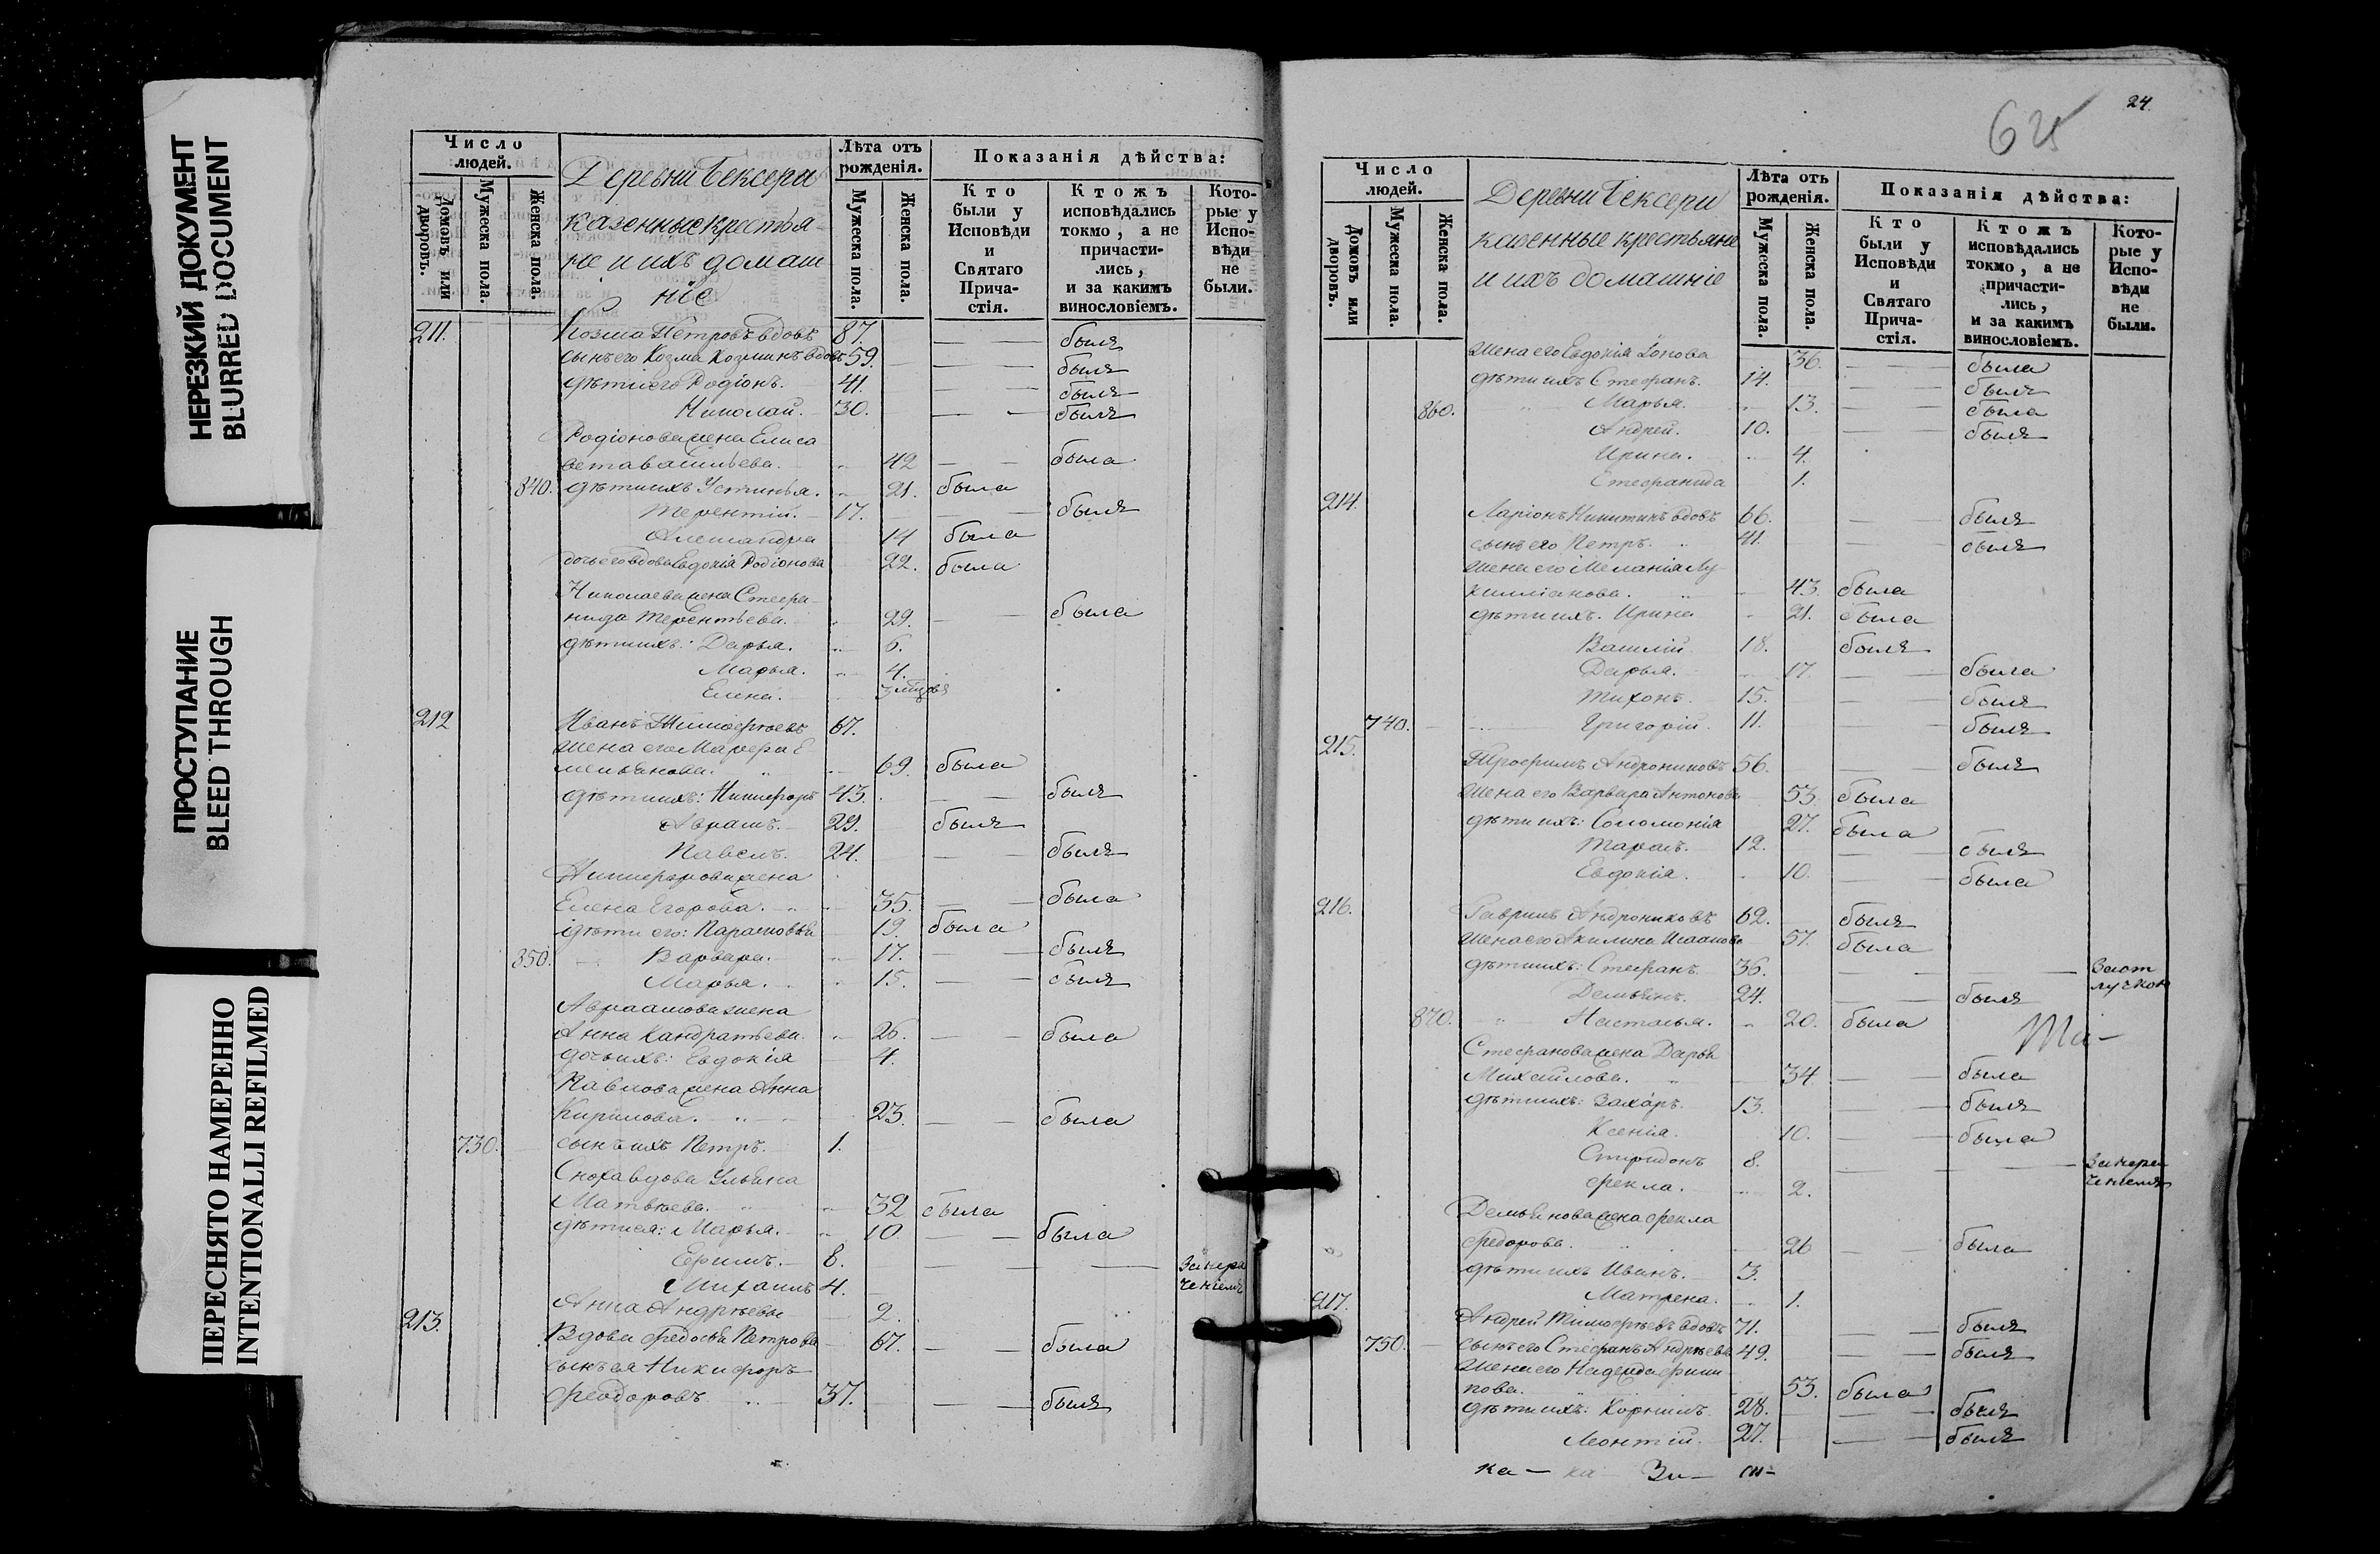 НЕРЕЗКИЙ ДОКУМЕНТ
BLURRED DOCUMENT
ПРОСТУПАНИЕ
BLEED THROUGH
ПЕРЕСНЯТО НАМЕРЕННО
INTENTIONALLI REFILMED
Число людей.
Домовъ или дворовъ.
Мужеска пола.
Женска пола.
Деревни Бексери
казенные крестья-
не и ихъ домаш-
ніе
Лѣта отъ рожденія.
Мужеска пола.
Женска пола.
Показанія дѣйства:
Кто были у Исповѣди и Святаго Прича-стія.
Ктожъ исповѣдались токмо, а не причасти-лись, и за какимъ винословіемъ.
Кото-рые у Испо-вѣди не были.
211. Козма Петровъ вдовъ 87. былъ
сынъ его Козма Козминъ вдовъ 59. былъ
дѣти его Родіонъ. 41. былъ
Николай. 30. былъ
Родіонова жена Елиса
вета Васильева. 42 была
840. дѣти ихъ Устинья. 21. была
Терентій. 17. былъ
Александра 14 была
дочь его вдова Евдокія Родіонова 22. была
Николаева жена Степа
нида Терентьева. 29. была
дѣти ихъ: Дарья. 6.
Марья. 4.
Елена. 3
212 Иванъ Тимофѣевъ 67.
жена его Марфа Е
мельянова. 69. была
дѣти ихъ: Никифоръ 43. былъ
Авраамъ. 29. былъ
Павелъ. 24. былъ
Никифорова жена
Елена Егорова. 35. была
дѣти его: Парасковья 19. была
850. Варвара. 17. былъ
Марья. 15. былъ
Авраамова жена
Анна Кандратьева. 26. была
дочь ихъ: Евдокія 4.
Павлова жена Анна
Кирилова. 23. была
730. сынъ ихъ Петръ. 1.
Сноха вдова Ульяна
Матвѣева. 32 была
дѣти ея: Марья. 10. была
Ефимъ. 8. За нера
Михаилъ 4. ченіемъ
Анна Андрѣева 2.
213. Вдова Федосья Петрова 67. была
сынъ ея Никифоръ
Феодоровъ 37. былъ
24.
625
Число людей.
Домовъ или дворовъ.
Мужеска пола.
Женска пола.
Деревни Бексери
казенные крестьяне
и ихъ домашніе
Лѣта отъ рожденія.
Мужеска пола.
Женска пола.
Показанія дѣйства:
Кто были у Исповѣди и Святаго Прича-стія.
Ктожъ исповѣдались токмо, а не причасти-лись, и за какимъ винословіемъ.
Кото-рые у Испо-вѣди не были.
жена его Евдокія 36. была
дѣти ихъ Стефанъ. 14. былъ
860. Марья. 13. была
Андрей. 10. былъ
Ирина. 4.
Стефанида 1.
214. Ларіонъ Никитинъ вдовъ 66. былъ
сынъ его Петръ. 41. былъ
жена его Меланія Лу-
киліанова. 43. была
дѣти ихъ. Ирина 21. была
Василій. 18. былъ
Дарья. 17. была
Тихонъ. 15. былъ
740. Григорій. 11. былъ
215. Трофимъ Андрониковъ 56. былъ
жена его Варвара Антонова 53. была
дѣти ихъ: Соломонія 27. была
Тарасъ. 12. былъ
Евдокія. 10. была
216. Гаврилъ Андрониковъ 62. былъ
жена его Акилина Исаакова 57. была
дѣти ихъ: Стефанъ. 36. За от
лучкою
Демьянъ. 24. былъ
870. Настасья. 20. была
Стефанова жена Дарья
Михайлова. 34 была
дѣти ихъ: Захаръ. 13. былъ
Ксенія. 10. была
Спиридонъ 8. За нера
ченіемъ
Фекла. 2.
Демьянова жена Фекла
Федорова. 26 была
дѣти ихъ Иванъ. 3.
Матрена. 1.
217. Андрей Тимофѣевъ вдовъ 71. былъ
750. сынъ его Стефанъ Андрѣевъ 49. былъ
жена его Надежда Филип-
пова. 53. была
дѣти ихъ: Корнилъ. 28. былъ
Леонтій. 27. былъ
ка—